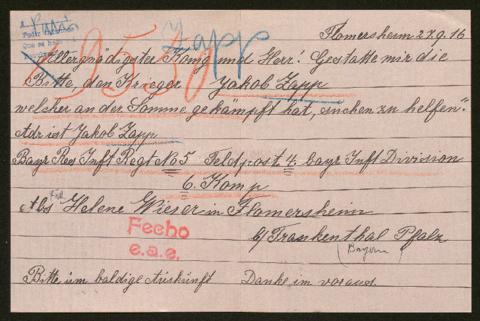 Zapp
Flomersheim 27.9.16
Allergnädigster König und Herr! Gestatte mir die
Bitte den Krieger Jakob Zapp
welcher an der Somme gekämpft hat, suchen zu helfen.
Adr ist Jakob Zapp
Bayr Res Inft Regt No 5 Feldpost 4. bayr Inft Division
6. Komp
Abs Helene Wieser in Flomersheim
Fecho
b/ Frankenthal Pfalz
e.a.e.
(Bayern
Bitte um baldige Auskunft Danke im voraus